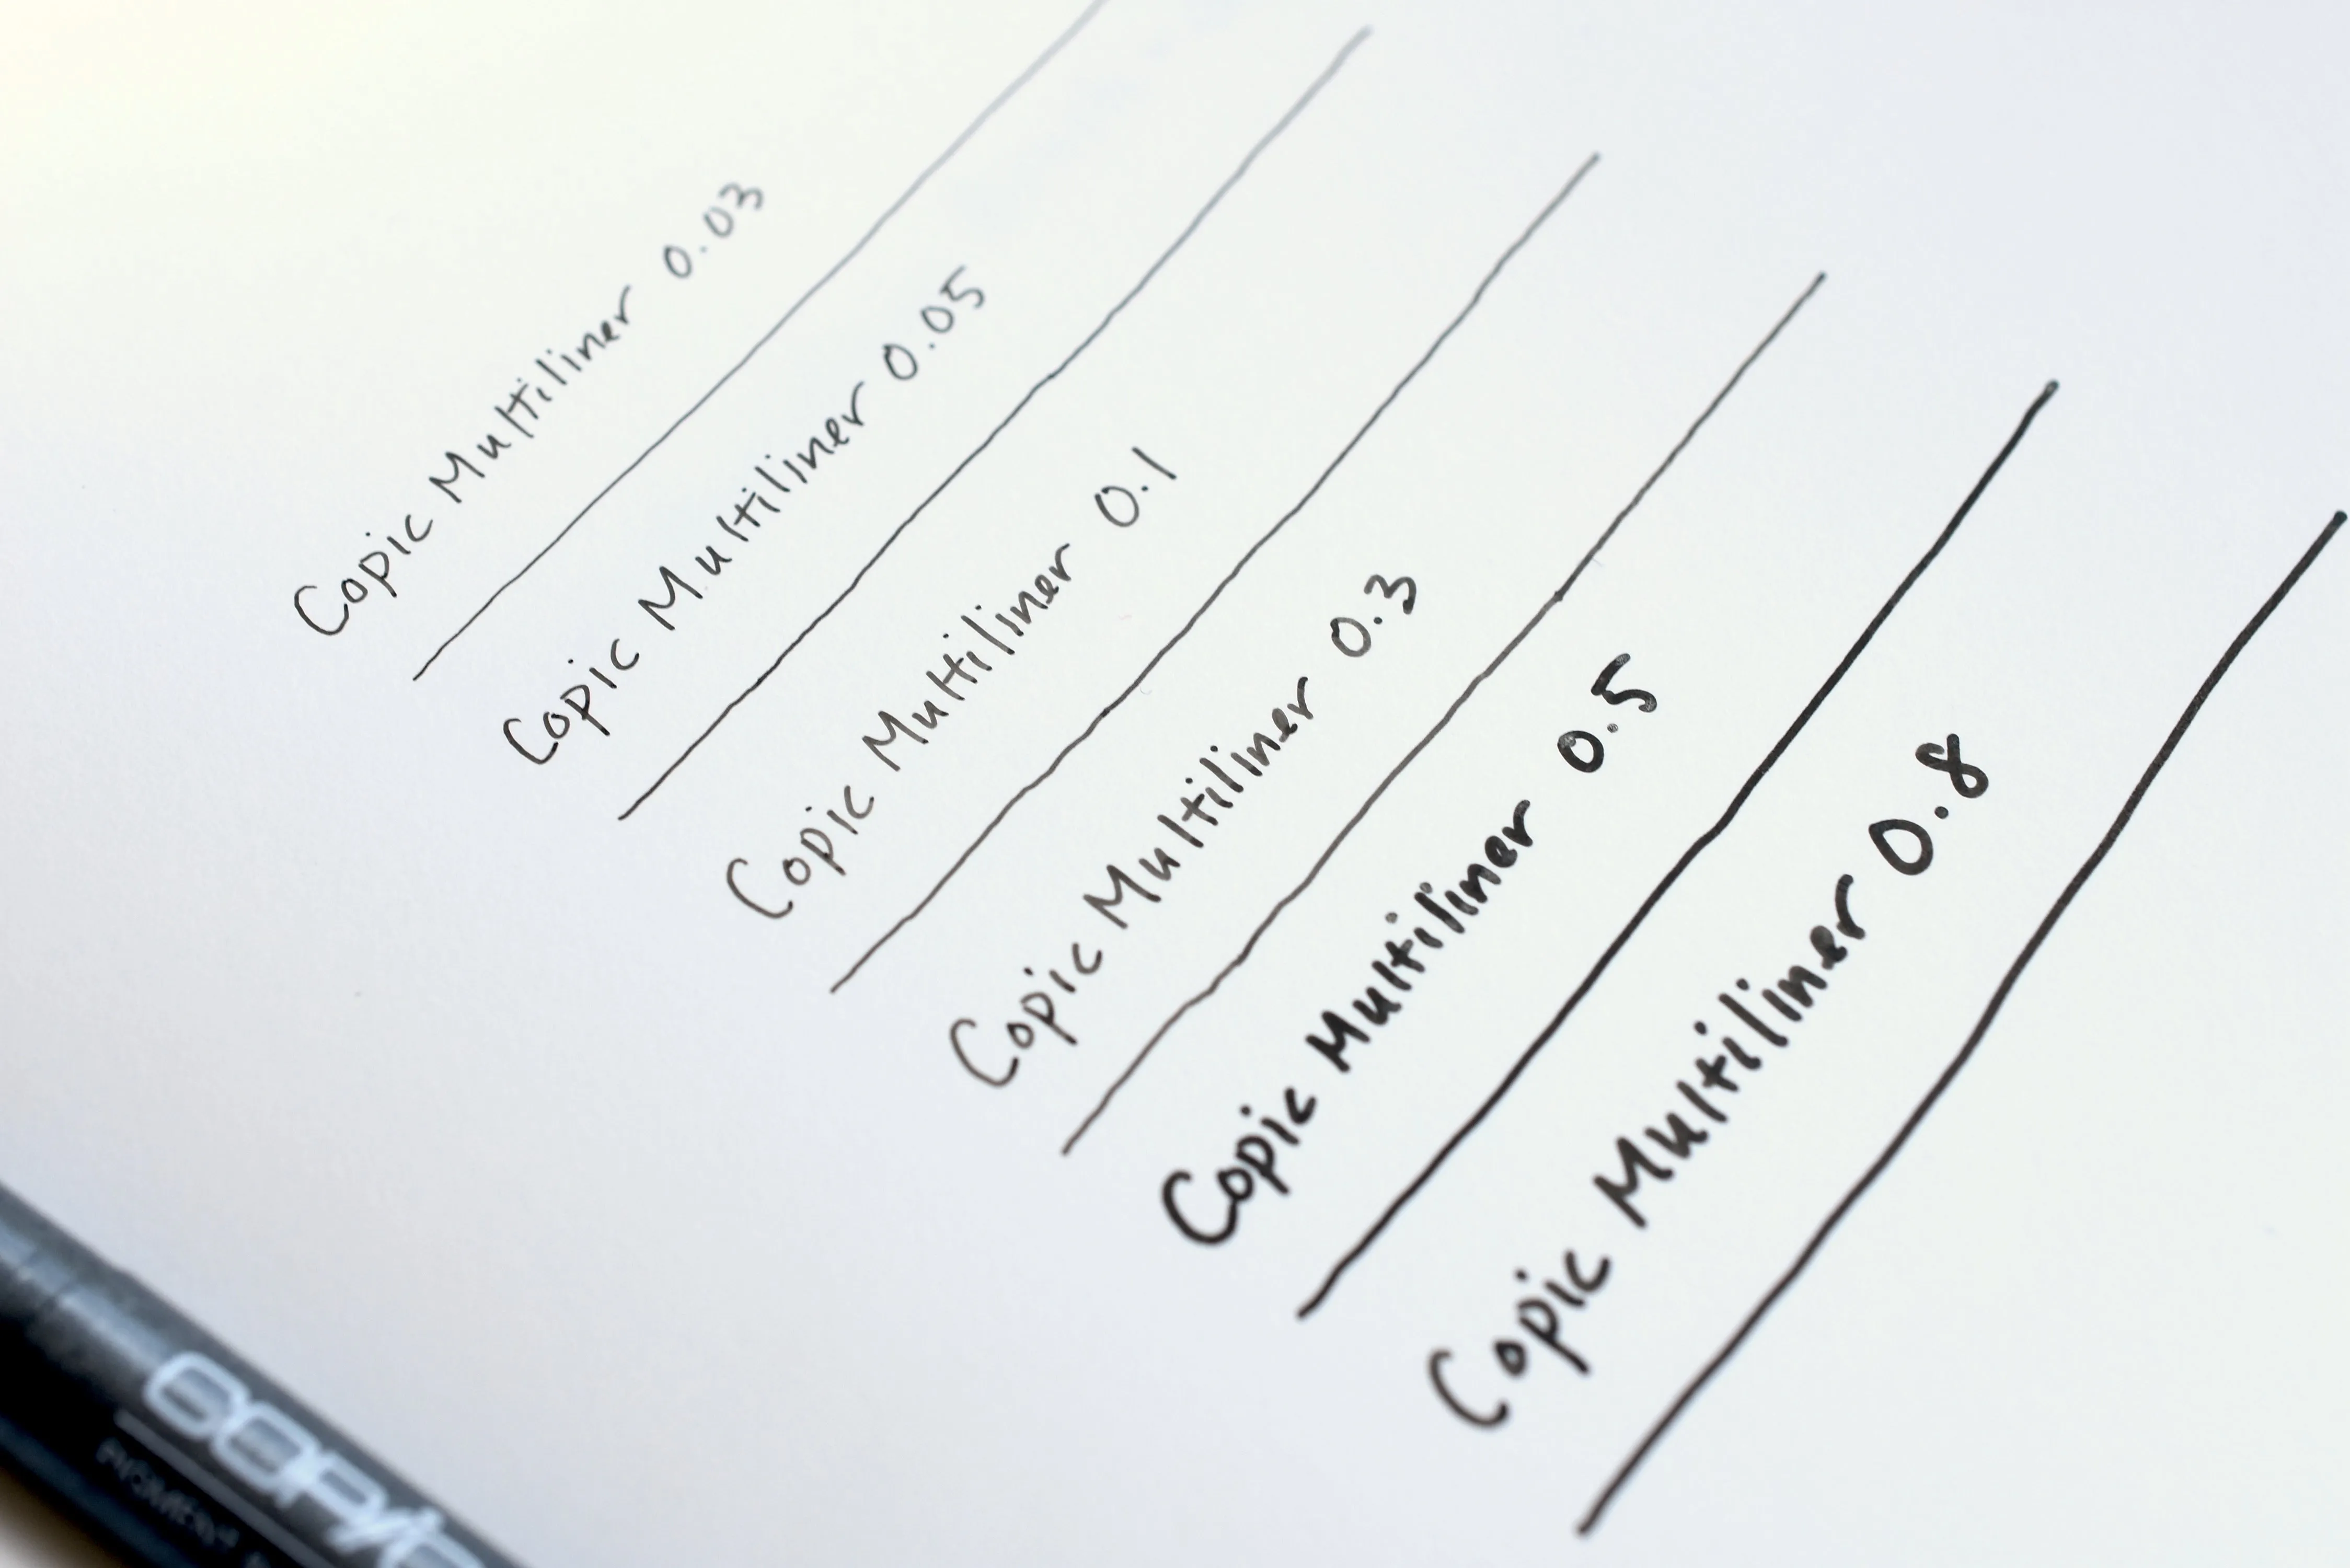 Copic Multiliner 0.03
Copic Multiliner 0.05
Copic Multiliner 0.1
Copic Multiliner 0.3
Copic Multiliner 0.5
Copic Multiliner 0.8
COPIC
PIGMENT